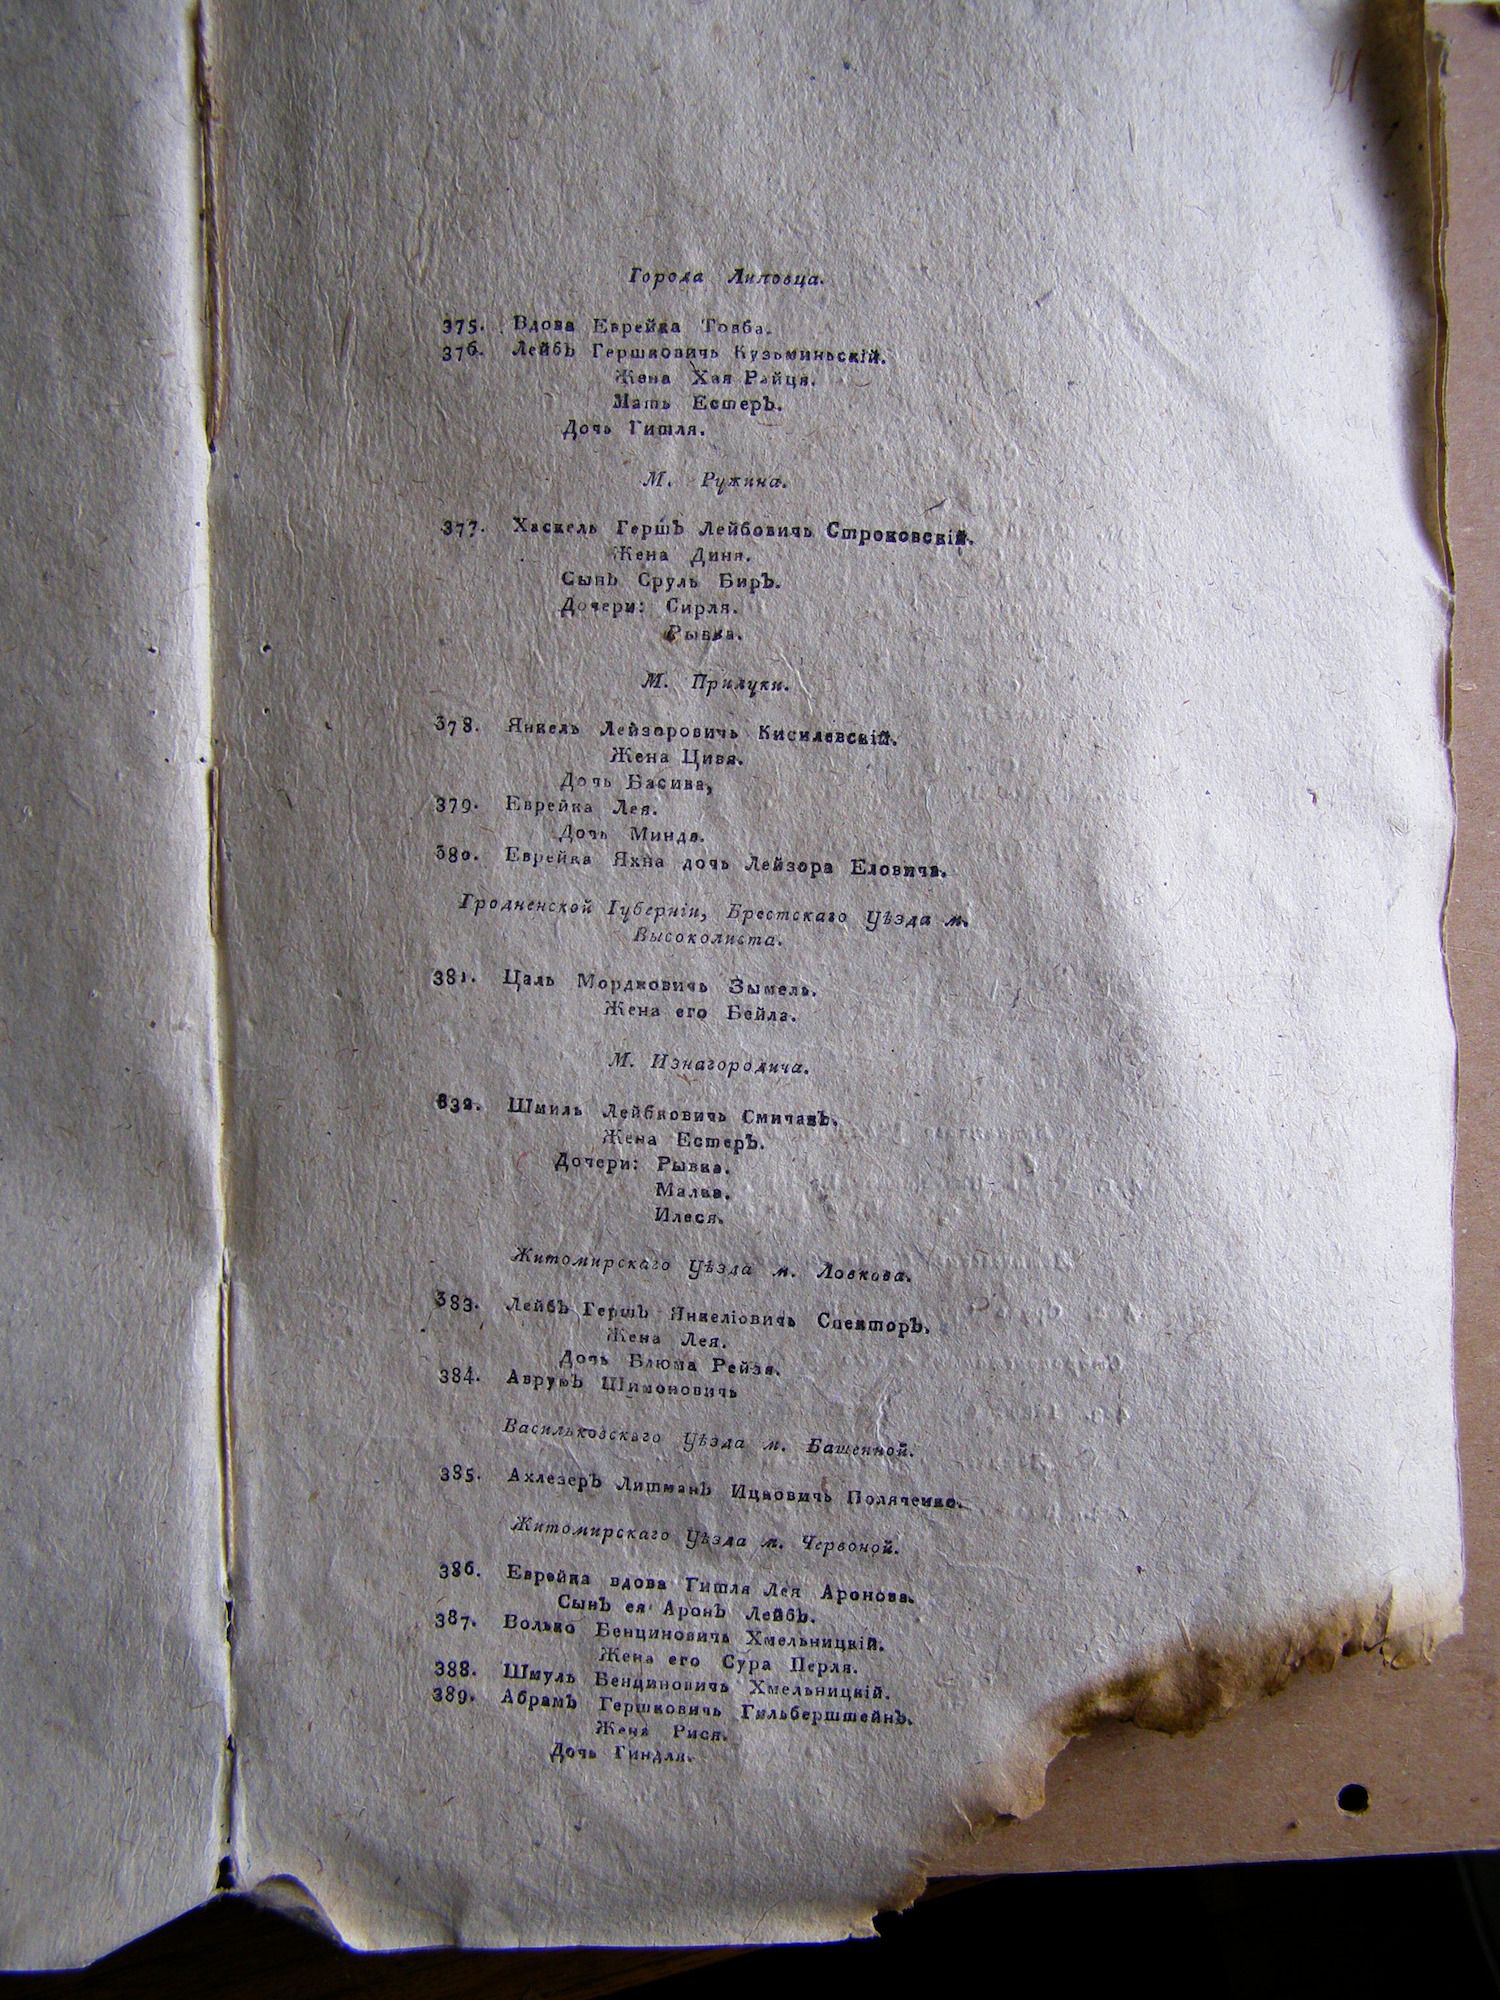 Города Липовца.
375. Вдова Еврейка Товба.
376. Лейбъ Гершковичь Кузьминьскій.
Жена Хая Райця.
Мать Естеръ.
Дочь Гитля.
М. Ружина.
377. Хаскель Гершъ Лейбовичь Строковскій.
Жена Диня.
Сынъ Сруль Биръ.
Дочери: Сирля.
Рывка.
М. Прилуки.
378. Янкель Лейзоровичь Кисилевскій.
Жена Цивя.
Дочь Басива,
379. Еврейка Лея.
Дочь Минда.
380. Еврейка Яхна дочь Лейзора Еловича.
Гродненской Губерніи, Брестскаго Уѣзда м.
Высоколиста.
381. Цаль Мордковичь Зымель.
Жена его Бейла.
М. Изнагородича.
832. Шмиль Лейбковичь
Жена Естеръ.
Дочери: Рывка.
Малка.
Илеся.
Житомирскаго Уѣзда м. Ловкова.
383. Лейбъ Гершъ Янкеліовичь Спекторъ.
Жена Лея.
Дочь Блюма Рейзя.
384. Аврумъ Шимоновичь
Васильковскаго Уѣзда м. Башенной.
385. Ахлезеръ Литманъ Ицковичь Поляченко.
Житомирскаго Уѣзда м. Червоной.
386. Еврейка вдова Гитля Лея Аронова.
Сынъ ея Аронъ Лейбъ.
387. Волько Бенциновичь Хмельницкій.
Жена его Сура Перля.
388. Шмуль Бенциновичь Хмельницкій.
389. Абрамъ Гершковичь Гильберштейнъ.
Жена Рися.
Дочь Гиндля.